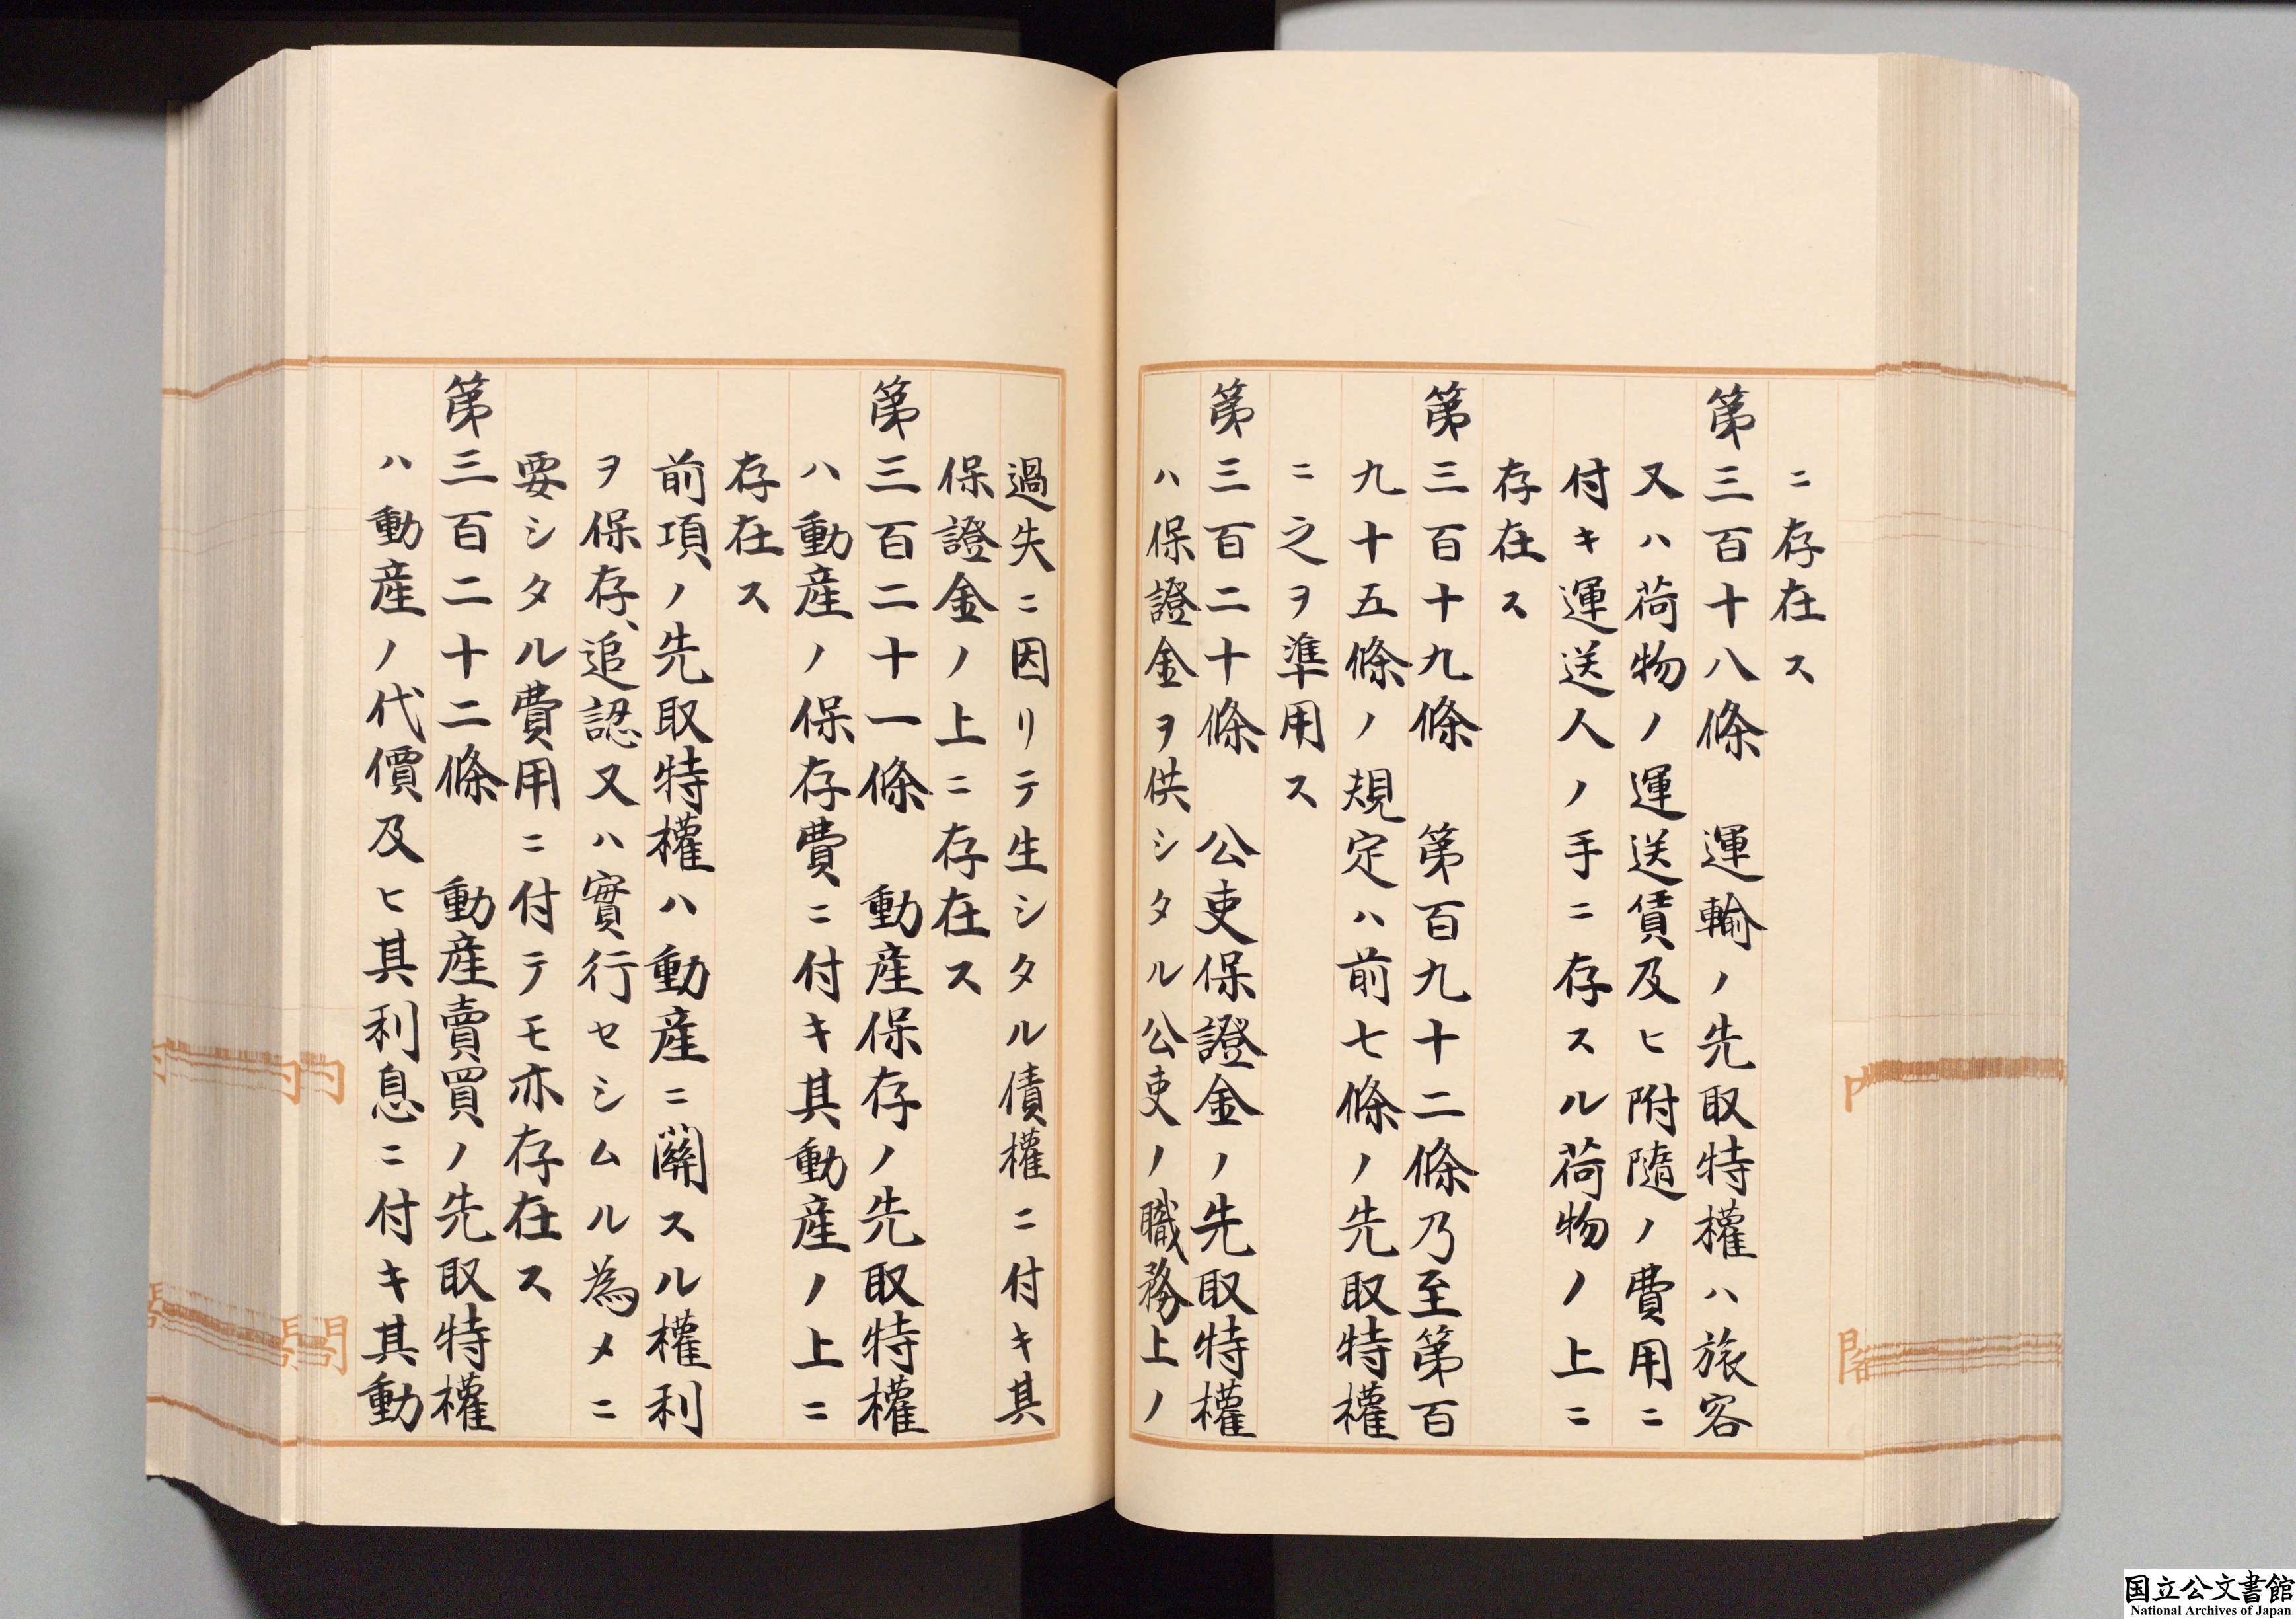 ニ存在ス
第三百十八條　運輸ノ先取特權ハ旅客
又ハ荷物ノ運送賃及ヒ附隨ノ費用ニ
付キ運送人ノ手ニ存スル荷物ノ上ニ
存在ス
第三百十九條　第百九十二條乃至第百
九十五條ノ規定ハ前七條ノ先取特權
ニ之ヲ準用ス
第三百二十條　公吏保證金ノ先取特權
ハ保證金ヲ供シタル公吏ノ職務上ノ
過失ニ因リテ生シタル債權ニ付キ其
保證金ノ上ニ存在ス
第三百二十一條　動產保存ノ先取特權
ハ動產ノ保存費ニ付キ其動產ノ上ニ
存在ス
前項ノ先取特權ハ動產ニ關スル權利
ヲ保存、追認又ハ實行セシムル為メニ
要シタル費用ニ付テモ亦存在ス
第三百二十二條　動產賣買ノ先取特權
ハ動產ノ代價及ヒ其利息ニ付キ其動
国立公文書館
National Archives of Japan